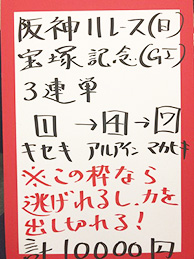 阪神11レース(日)
宝塚記念(GI)
3連単
1→4→7
キセキ アルアイン マカヒキ
※この枠なら
逃げれるし、力を
出し切れる!
計10000円